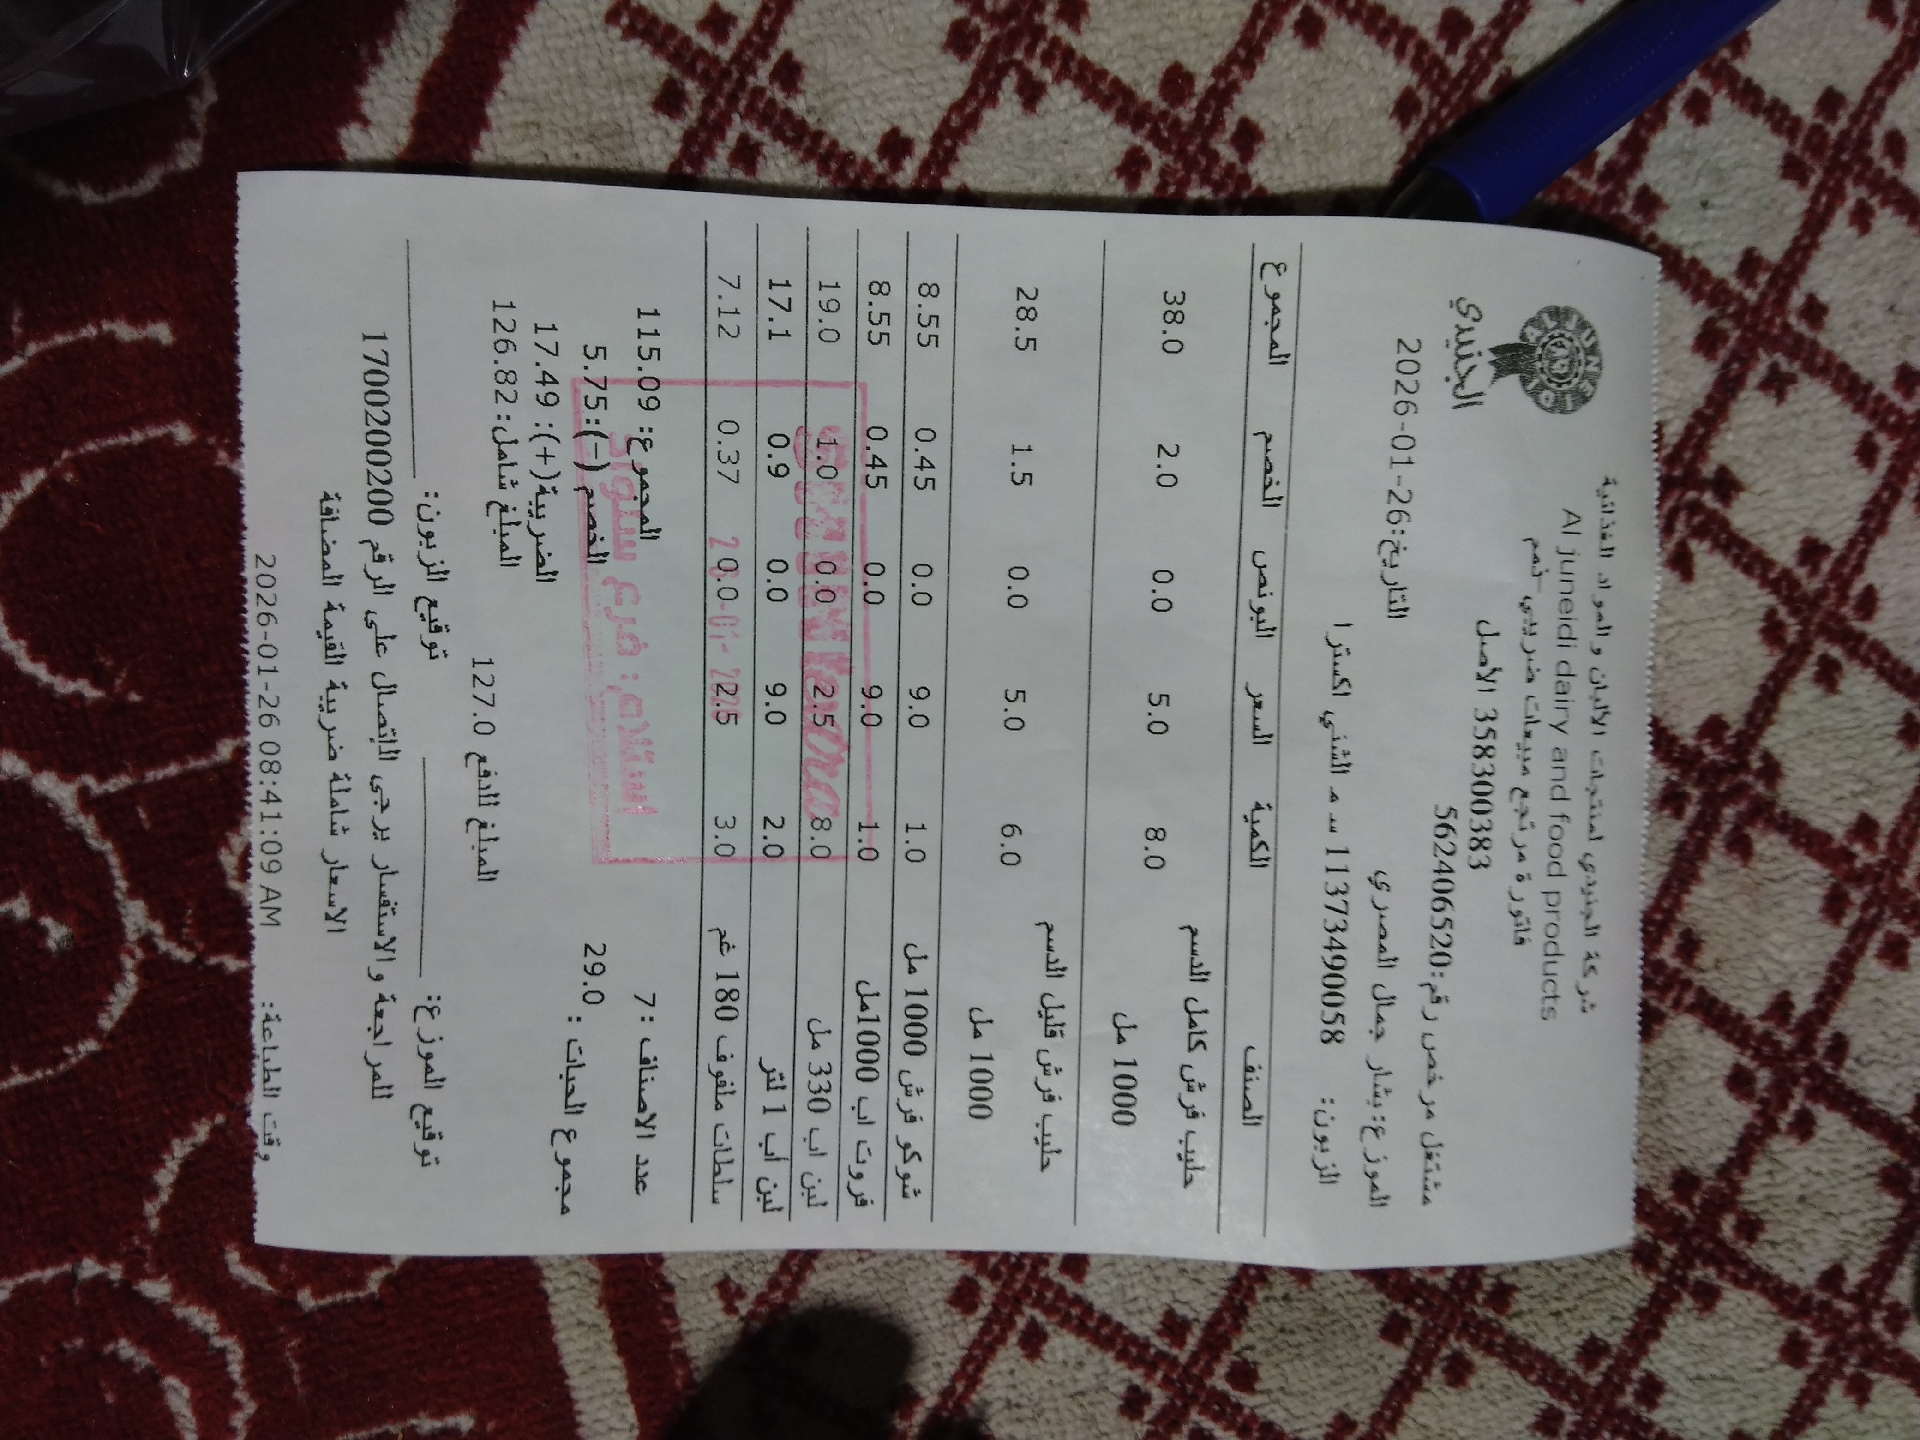 الجنيدي
شركة الجنيدي لمنتجات الألبان والمواد الغذائية
Al juneidi dairy and food products
فاتورة مرتجع مبيعات ضريبي-ذمم
358300383 الأصل
مشتغل مرخص رقم:562406520
التاريخ:26-01-2026
الموزع:بشار جمال المصري
الزبون: 11373490058 س م الشني اكسترا
الصنف الكمية السعر البونص الخصم المجموع
حليب فرش كامل الدسم 1000 مل 8.0 5.0 0.0 2.0 38.0
حليب فرش قليل الدسم 1000 مل 6.0 5.0 0.0 1.5 28.5
شوكو فرش 1000 مل 1.0 9.0 0.0 0.45 8.55
فروت اب 1000مل 1.0 9.0 0.0 0.45 8.55
لبن اب 330 مل 8.0 2.5 0.0 1.0 19.0
لبن أب 1 لتر 2.0 9.0 0.0 0.9 17.1
سلطات ملفوف 180 غم 3.0 2.5 0.0 0.37 7.12
استلام: فرع سنوار
عدد الاصناف :7 المجموع: 115.09
مجموع الحبات : 29.0 الخصم (-):5.75
الضريبة(+): 17.49
المبلغ شامل: 126.82
المبلغ للدفع 127.0
توقيع الموزع: توقيع الزبون:
المراجعة والاستفسار يرجى الاتصال على الرقم 1700200200
الاسعار شاملة ضريبة القيمة المضافة
وقت الطباعة: 2026-01-26 08:41:09 AM